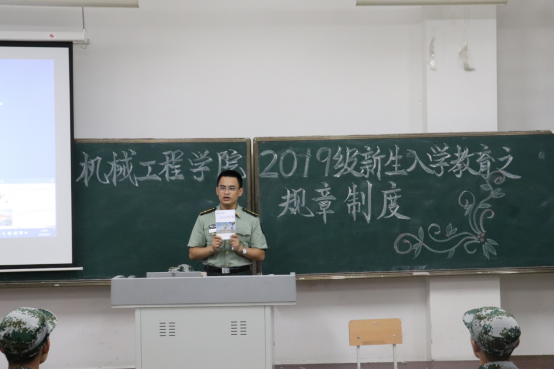 机械工程学院 2019级新生入学教育之
规章制度